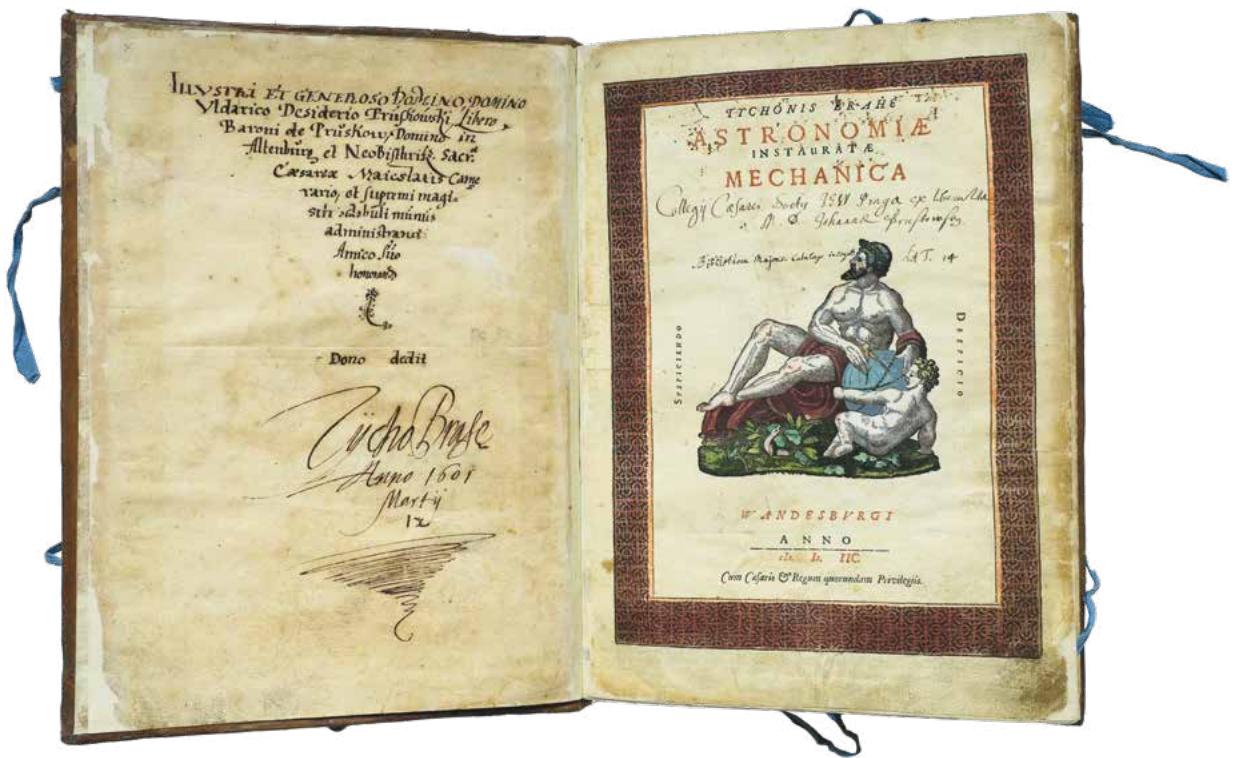 ILLVSTRI ET GENEROSO DOMINO, DOMINO
Vldarico Desiderio Pruskouski, Libero
Baroni de Pruskow, Domino in
Altenburg et Neobistkritz, Sacr.
Cæsareæ Maiestatis Came
rario, et supremi magi-
stri stabuli munus
administranti
Amico suo
honorando
Dono dedit
Tycho Brahe
Anno 1601
Martij
TYCHONIS BRAHE
ASTRONOMIÆ
INSTAURATÆ
MECHANICA
Collegij Cæsarei Societ. IESV Pragæ ex
D. Johannis
Bibliothecæ Majoris Catalogo inscript.
LAT. 14
SVSPICIENDO
DESPICIO
WANDESBVRGI
ANNO
IIC.
Cum Cæsaris & Regum quorundam Privilegiis.